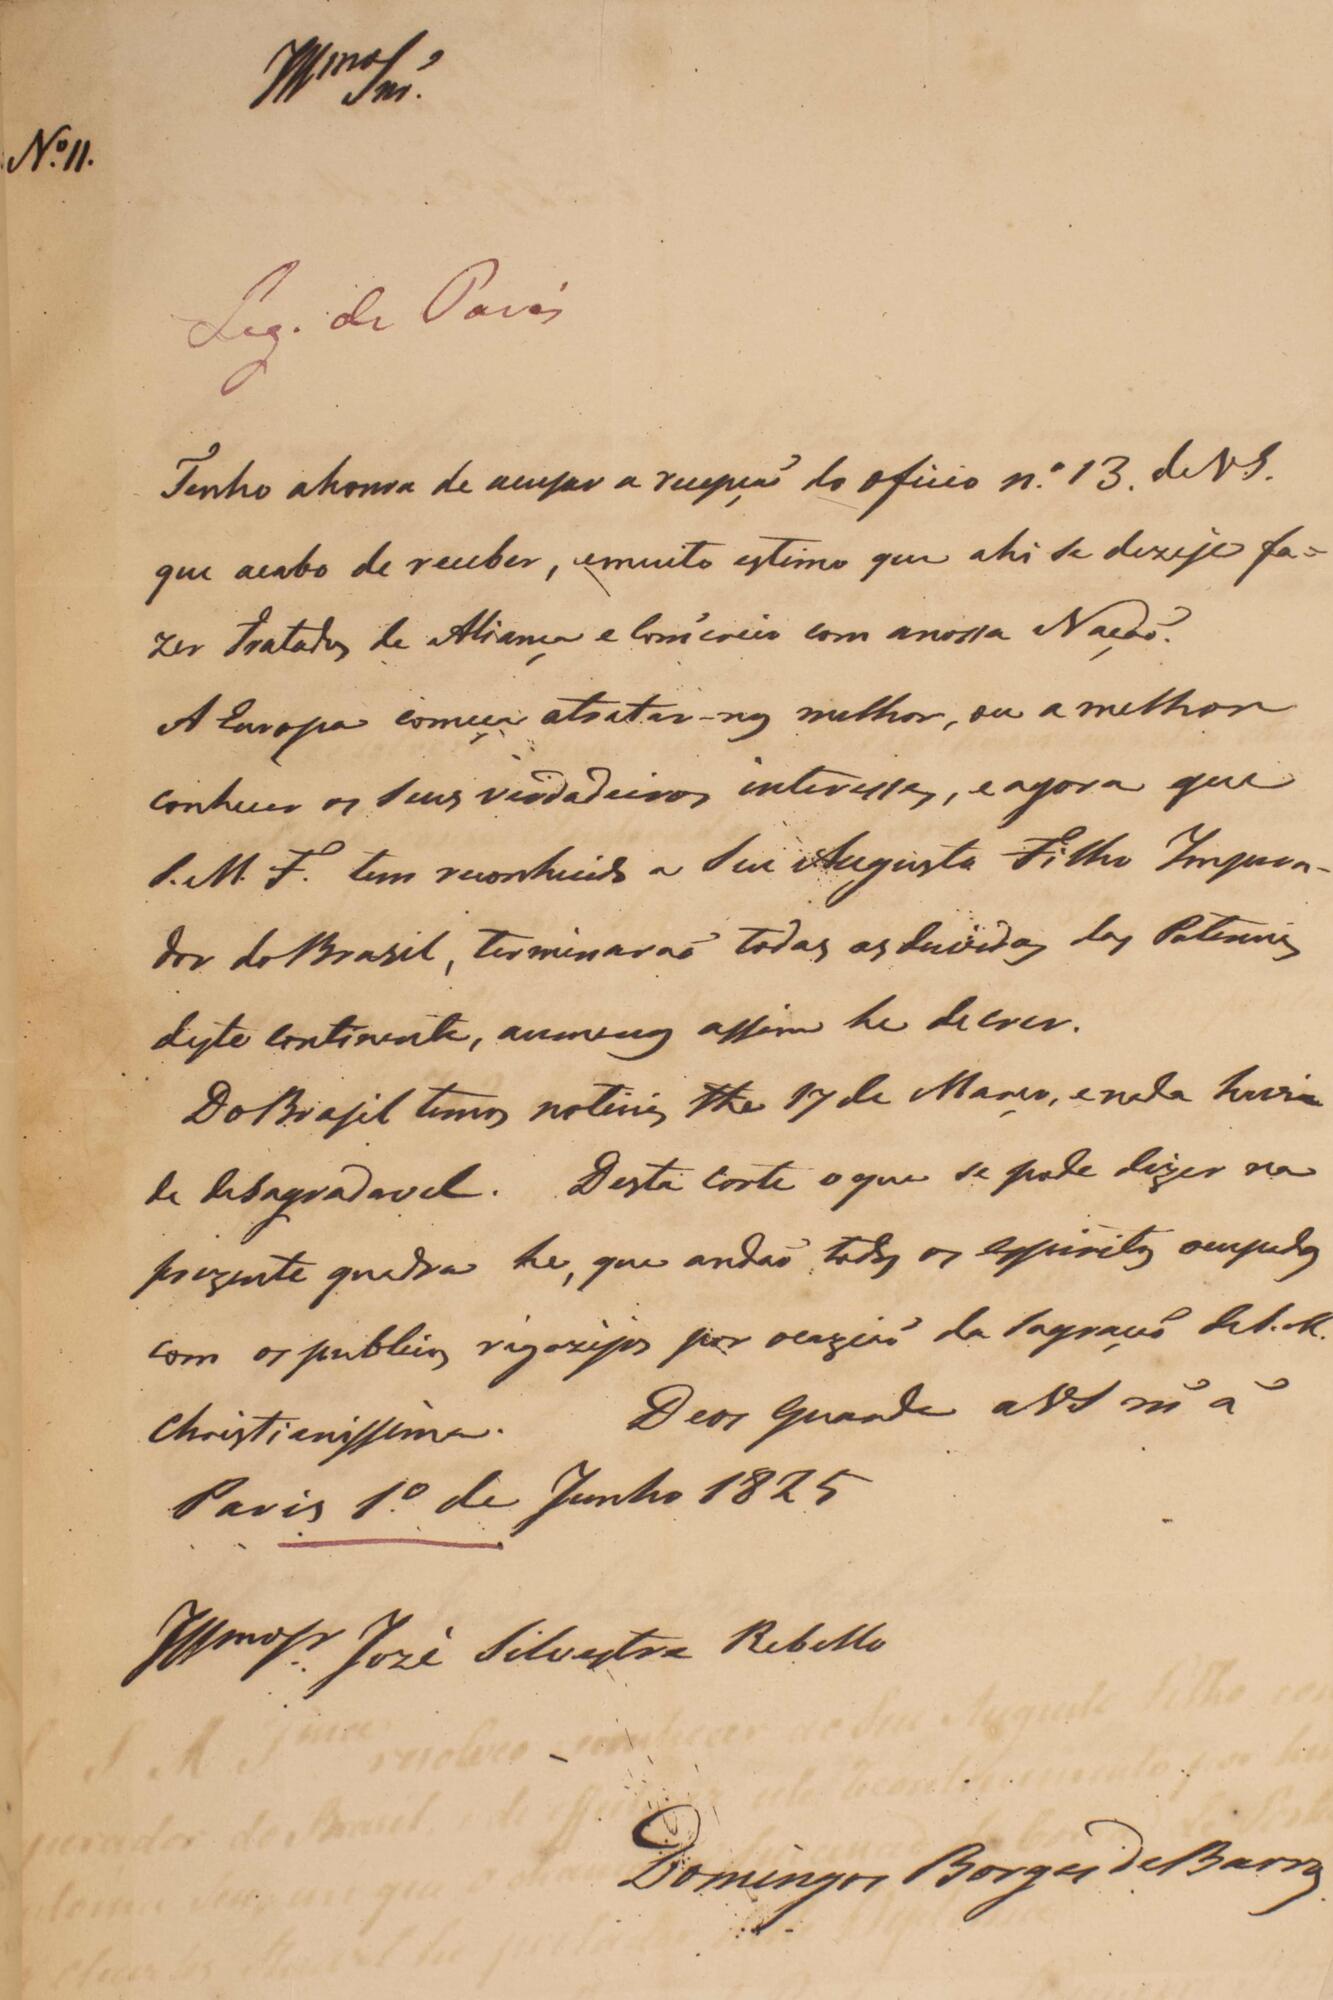 Illmo Snr.
N.º 11.
Leg. de Paris
Tenho ahonra de acusar a recepção do oficio n.º 13. de V.S.
que acabo de receber, emuito estimo que ahi se dezeje fa=
zer tratados de Aliança e Comercio com anossa Nação.
A Europa começa atratar-nos melhor, ou a melhor
conhecer os seus verdadeiros interesses, e agora que
S. M. F. tem reconhecido a Seu Augusto Filho Impera-
dor do Brasil, terminaraõ todas as duvidas das Potencias
deste continente, aomenos assim he de crer.
Do Brasil temos noticias the 17 de Março, e nada havia
de desagradavel. Desta Corte o que se pode dizer na
prezente quadra he, que andaõ todos os espiritos ocupados
com os publicos rigozijos por ocaziaõ da Sagraçaõ de S. M.
Christianissima. Deos Guarde a V S mˢ aˢ
Paris 1.º de Junho 1825
Illmo Sr. Jozé Silvestre Rebello
Domingos Borges de Barros